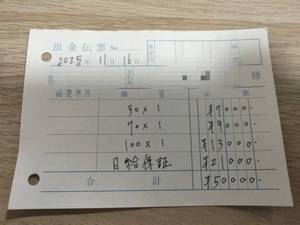 出金伝票 No.
2025年 11月 16日
様
勘定科目 摘要 金額
50×1 ¥7000-
70×1 ¥9000-
100×1 ¥13000-
日給保証 ¥21000-
合計 ¥50000-